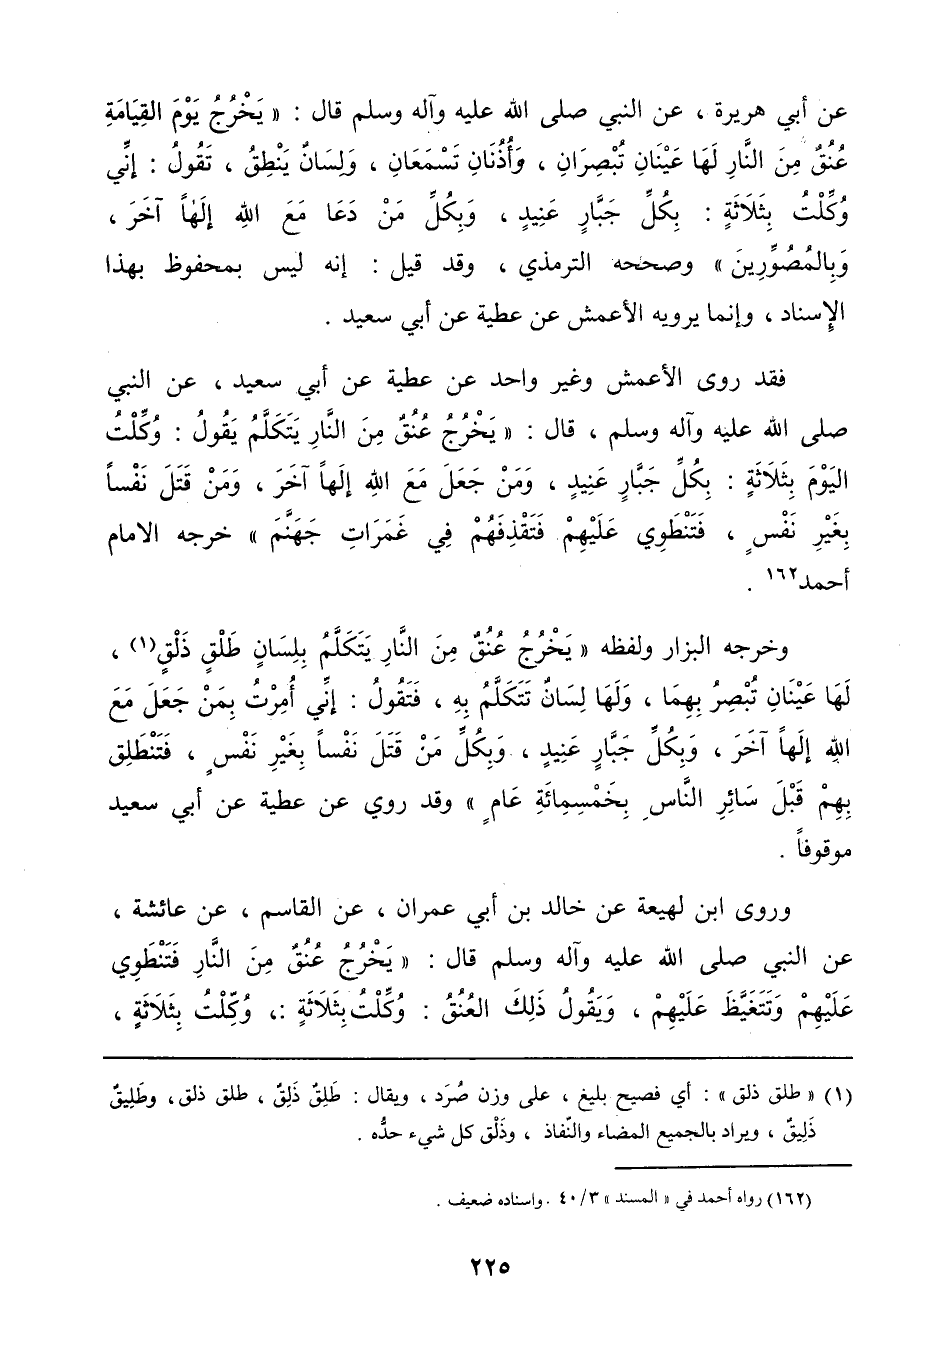 عن أبي هريرة ، عن النبي صلى الله عليه وآله وسلم قال : « يَخْرُجُ يَوْمَ القِيَامَةِ
عُنُقٌ مِنَ النَّارِ لَهَا عَيْنَانِ تُبْصِرَانِ ، وَأُذُنَانِ تَسْمَعَانِ ، وَلِسَانٌ يَنْطِقُ ، تَقُولُ : إنِّي
وُكِّلْتُ بِثَلَاثَةٍ : بِكُلِّ جَبَّارٍ عَنِيدٍ ، وَبِكُلِّ مَنْ دَعَا مَعَ اللهِ إلَهاً آخَرَ ،
وَبِالمُصُوِّرِينَ » وصححه الترمذي ، وقد قيل : إنه ليس بمحفوظ بهذا
الإسناد ، وإنما يرويه الأعمش عن عطية عن أبي سعيد .
فقد روى الأعمش وغير واحد عن عطية عن أبي سعيد ، عن النبي
صلى الله عليه وآله وسلم ، قال : « يَخْرُجُ عُنُقٌ مِنَ النَّارِ يَتَكَلَّمُ يَقُولُ : وُكِّلْتُ
اليَوْمَ بِثَلَاثَةٍ : بِكُلِّ جَبَّارٍ عَنِيدٍ ، وَمَنْ جَعَلَ مَعَ اللهِ إلَهاً آخَرَ ، وَمَنْ قَتَلَ نَفْساً
بِغَيْرِ نَفْسٍ ، فَتَنْطَوِي عَلَيْهِمْ فَتَقْذِفَهُمْ فِي غَمَرَاتِ جَهَنَّمَ » خرجه الامام
أحمد١٦٢ .
وخرجه البزار ولفظه « يَخْرُجُ عُنُقٌ مِنَ النَّارِ يَتَكَلَّمُ بِلِسَانٍ طَلْقٍ ذَلْقٍ(١) ،
لَهَا عَيْنَانِ تُبْصِرُ بِهِمَا ، وَلَهَا لِسَانٌ تَتَكَلَّمُ بِهِ ، فَتَقُولُ : إنِّي أُمِرْتُ بِمَنْ جَعَلَ مَعَ
اللهِ إلَهاً آخَرَ ، وَبِكُلِّ جَبَّارٍ عَنِيدٍ ، وَبِكُلِّ مَنْ قَتَلَ نَفْساً بِغَيْرِ نَفْسٍ ، فَتَنْطَلِق
بِهِمْ قَبْلَ سَائِرِ النَّاسِ بِخَمْسِمِائَةِ عَامٍ » وقد روي عن عطية عن أبي سعيد
موقوفاً .
وروى ابن لهيعة عن خالد بن أبي عمران ، عن القاسم ، عن عائشة ،
عن النبي صلى الله عليه وآله وسلم قال : « يَخْرُجُ عُنُقٌ مِنَ النَّارِ فَتَنْطَوِي
عَلَيْهِمْ وَتَتَغَيَّظَ عَلَيْهِمْ ، وَيَقُولُ ذَلِكَ العُنُقُ : وُكِّلْتُ بِثَلَاثَةٍ :، وُكِّلْتُ بِثَلَاثَةٍ ،
(١) « طلق ذلق » : أي فصيح بليغ ، على وزن صُرَد ، ويقال : طَلِقٌ ذَلِقٌ ، طلق ذلق ، وطَلِيقٌ
ذَلِيقٌ ، ويراد بالجميع المضاء والنّفاذ ، وذَلْق كل شيء حدُّه .
(١٦٢) رواه أحمد في « المسند » ٣/ ٤٠ . واسناده ضعيف .
٢٢٥